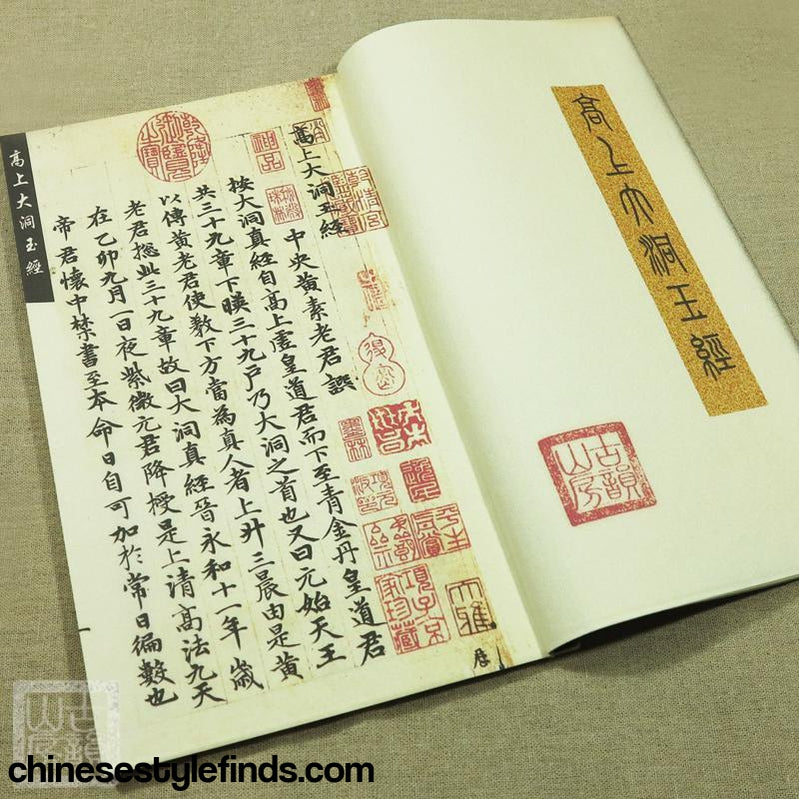 高上大洞玉經
古韻山房
高上大洞玉經
中央黃素老君譔
按大洞真經自高上虛皇道君而下至青金丹皇道君
共三十九章下暎三十九户乃大洞之首也又曰元始天王
以傳黃老君使教下方當為真人者上升三晨由是黃
老君揔此三十九章故曰大洞真經晉永和十一年歲
在乙卯九月一日夜紫微元君降授是上清高法九天
帝君懷中禁書至本命日自可加於常日徧數也
乾隆御覽之寶
神品
墨林
項子京家珍藏
高上大洞玉經
古韻山房
chinesestylefinds.com